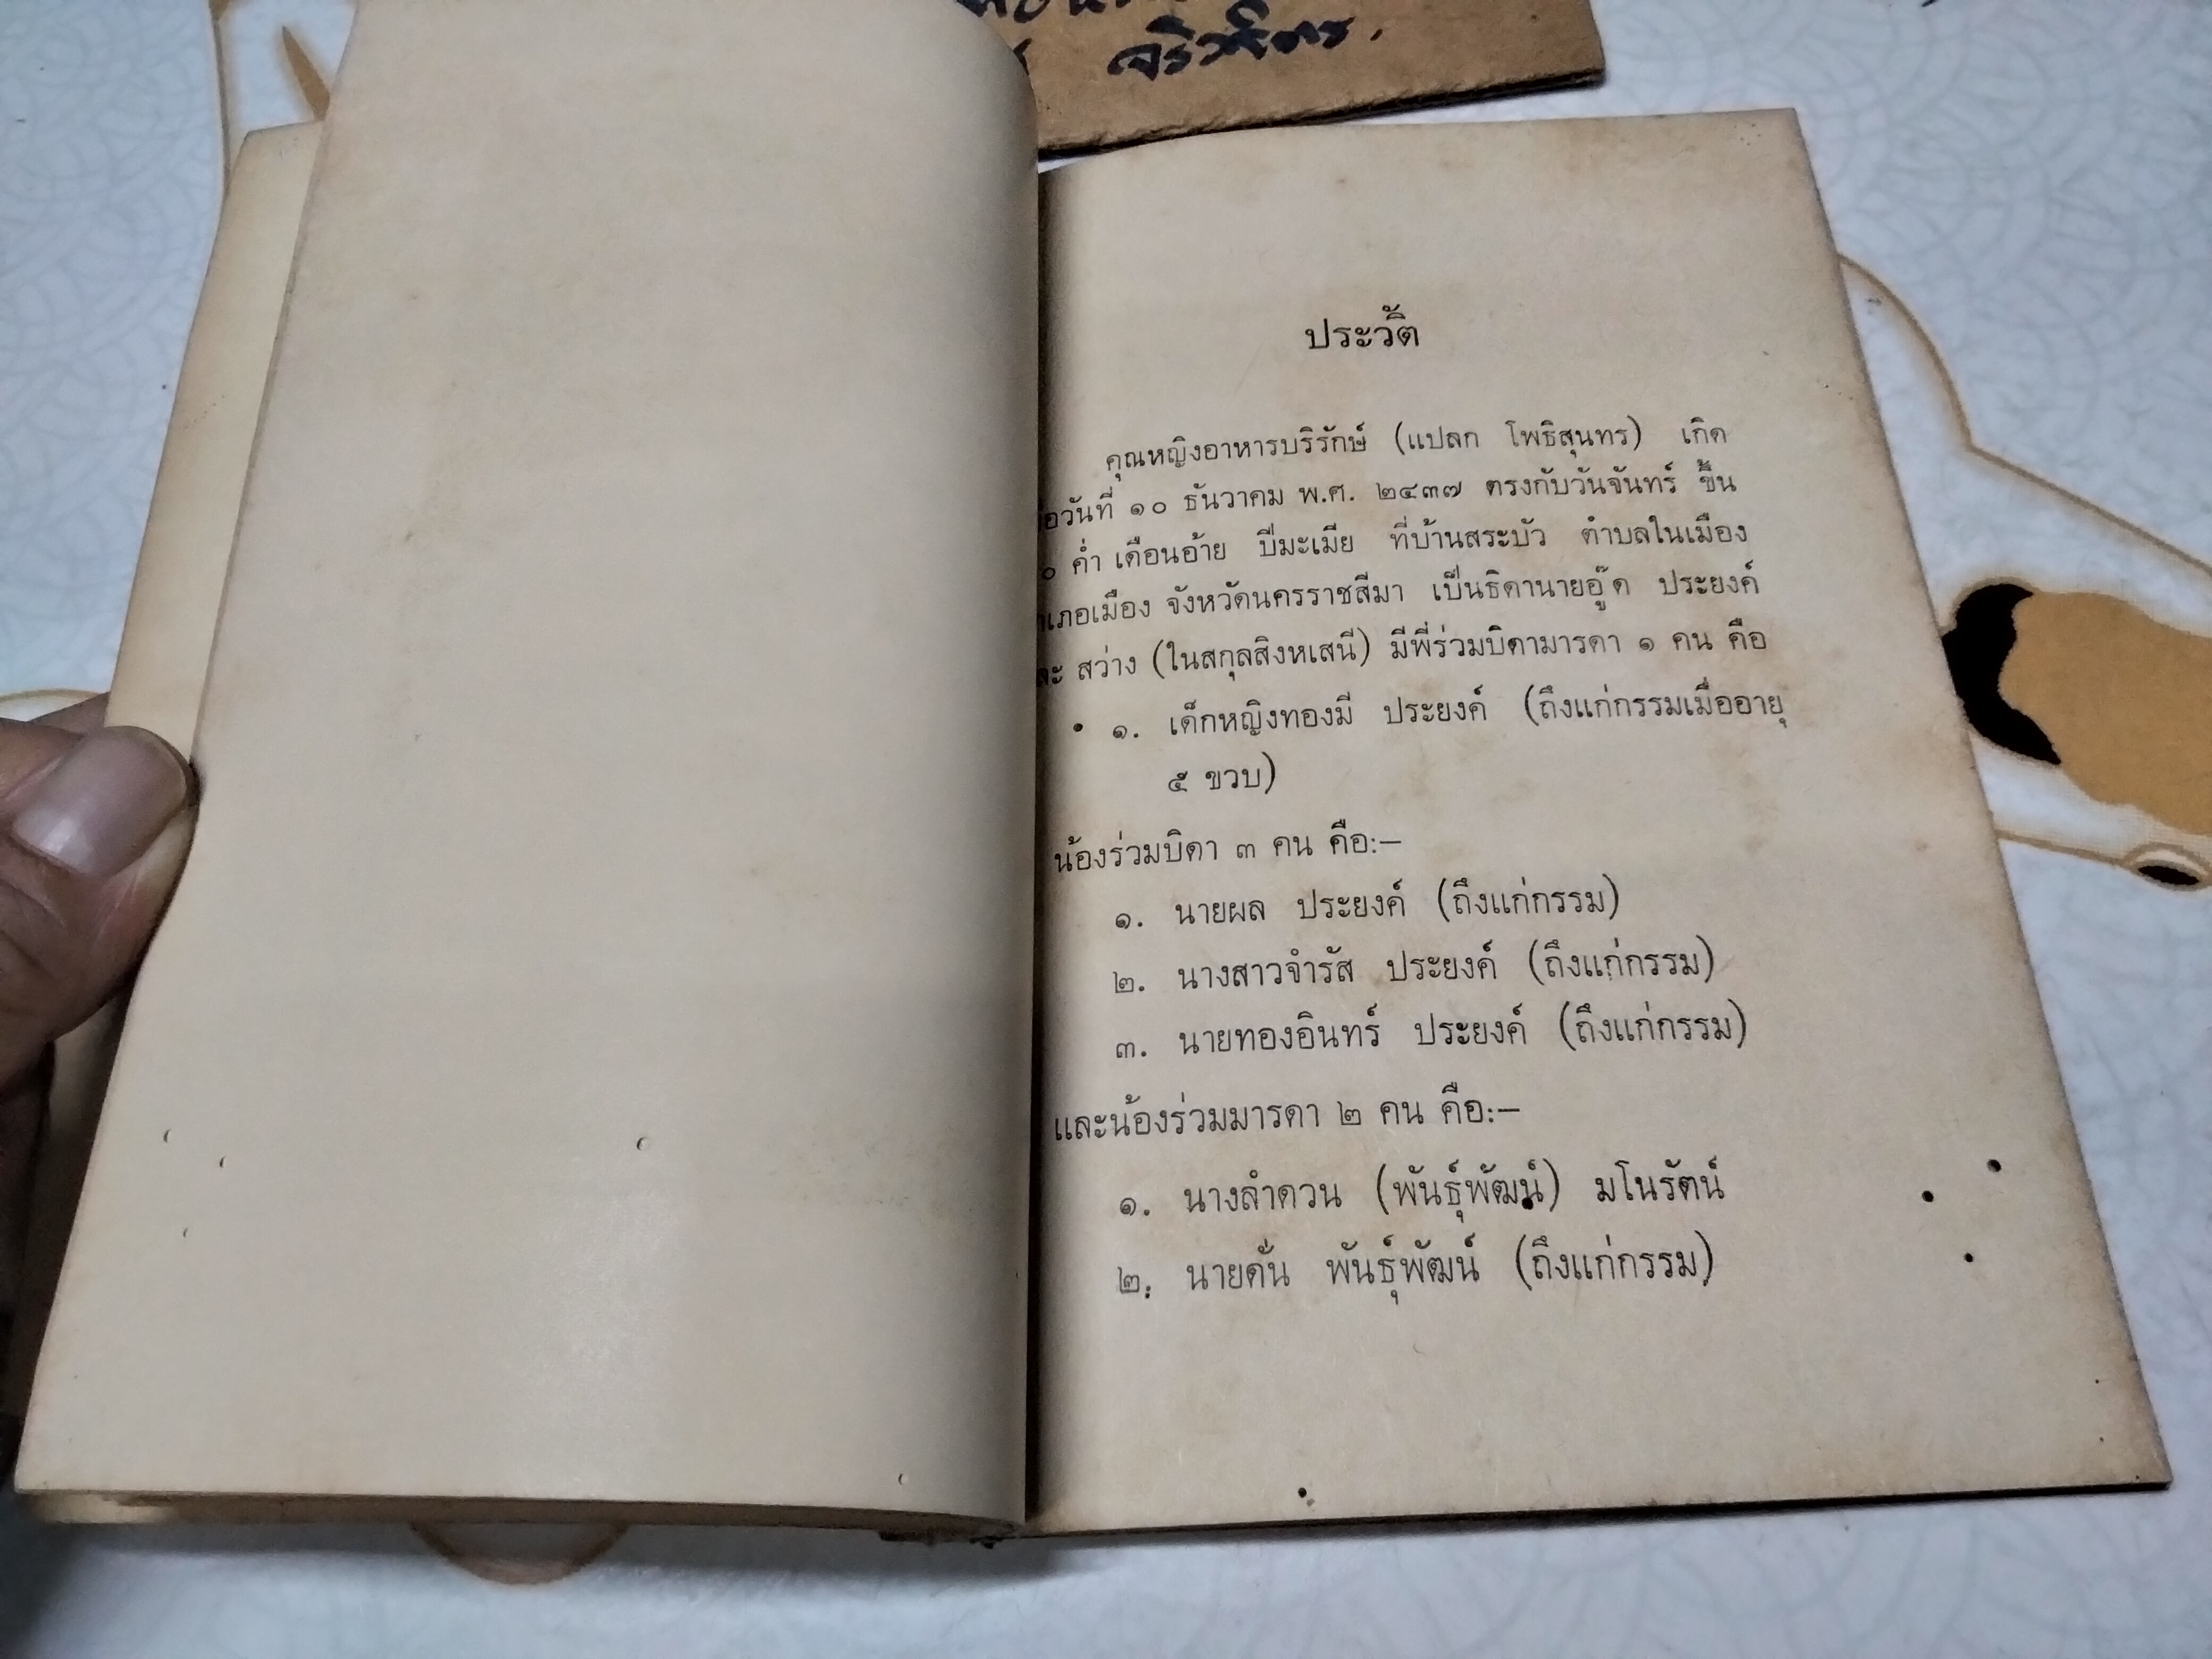 จริวิจิตร.
ประวัติ
คุณหญิงอาหารบริรักษ์ (แปลก โพธิสุนทร) เกิด
อวันที่ ๑๐ ธันวาคม พ.ศ. ๒๔๓๗ ตรงกับวันจันทร์ ขึ้น
๐ ค่ำ เดือนอ้าย ปีมะเมีย ที่บ้านสระบัว ตำบลในเมือง
เภอเมือง จังหวัดนครราชสีมา เป็นธิดานายอู๊ด ประยงค์
ละ สว่าง (ในสกุลสิงหเสนี) มีพี่ร่วมบิดามารดา ๑ คน คือ
๑. เด็กหญิงทองมี ประยงค์ (ถึงแก่กรรมเมื่ออายุ
๕ ขวบ)
น้องร่วมบิดา ๓ คน คือ:—
๑. นายผล ประยงค์ (ถึงแก่กรรม)
๒. นางสาวจำรัส ประยงค์ (ถึงแก่กรรม)
๓. นายทองอินทร์ ประยงค์ (ถึงแก่กรรม)
และน้องร่วมมารดา ๒ คน คือ:—
๑. นางลำดวน (พันธุ์พัฒน์) มโนรัตน์
๒. นายดั่น พันธุ์พัฒน์ (ถึงแก่กรรม)